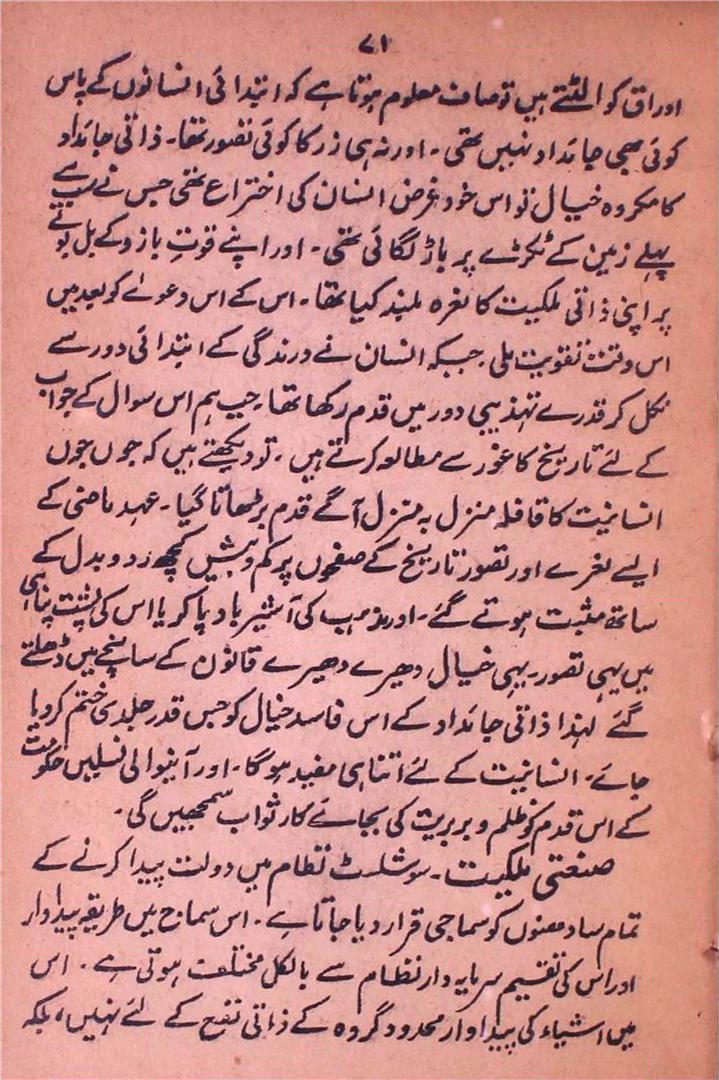 ۷۱
اوراق کو الٹتے ہیں تو صاف معلوم ہوتا ہے کہ ابتدائی انسانوں کے پاس
کوئی بھی جائداد نہیں تھی۔ اور نہ ہی زر کا کوئی تصور تھا۔ ذاتی جائداد
کا مکروہ خیال تو اس خود غرض انسان کی اختراع تھی جس نے سب سے
پہلے زمین کے ٹکڑے پر باڑ لگائی تھی۔ اور اپنے قوتِ بازو کے بل بوتے
پر اپنی ذاتی ملکیت کا نعرہ بلند کیا تھا۔ اس کے اس دعوے کو بعد میں
اس وقت تقویت ملی۔ جبکہ انسان نے درندگی کے ابتدائی دور سے
نکل کر قدرے تہذیبی دور میں قدم رکھا تھا۔ جب ہم اس سوال کے جواب
کے لئے تاریخ کا غور سے مطالعہ کرتے ہیں۔ تو دیکھتے ہیں کہ جوں جوں
انسانیت کا قافلہ منزل بہ منزل آگے قدم بڑھاتا گیا۔ عہد ماضی کے
ایسے نعرے اور تصور تاریخ کے صفحوں پر کم و بیش کچھ رد و بدل کے
ساتھ مثبت ہوتے گئے۔ اور مذہب کی آشیرباد پا کر یا اس کی پشت پناہی
میں یہی تصور۔ یہی خیال دھیرے دھیرے قانون کے سانچے میں ڈھلتے
گئے لہٰذا ذاتی جائداد کے اس فاسد خیال کو جس قدر جلدی ختم کر دیا
جائے۔ انسانیت کے لئے اتنا ہی مفید ہوگا۔ اور آنیوالی نسلیں حکومت
کے اس قدم کو ظلم و بربریت کی بجائے کار ثواب سمجھیں گی۔
صنعتی ملکیت۔ سوشلسٹ نظام میں دولت پیدا کرنے کے
تمام سادھنوں کو سماجی قرار دیا جاتا ہے۔ اس سماج میں طریقہ پیداوار
اور اس کی تقسیم سرمایہ دار نظام سے بالکل مختلف ہوتی ہے۔ اس
میں اشیاء کی پیداوار محدود گروہ کے ذاتی نفع کے لئے نہیں، بلکہ